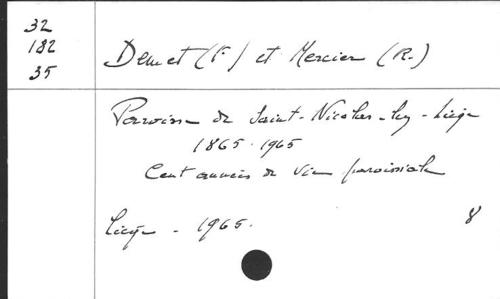 32
182
35
Demet (F.) et Mercier (R.)
Paroisse de Saint-Nicolas-lez-Liège
1865-1965
Cent années de vie paroissiale
Liège - 1965.
8